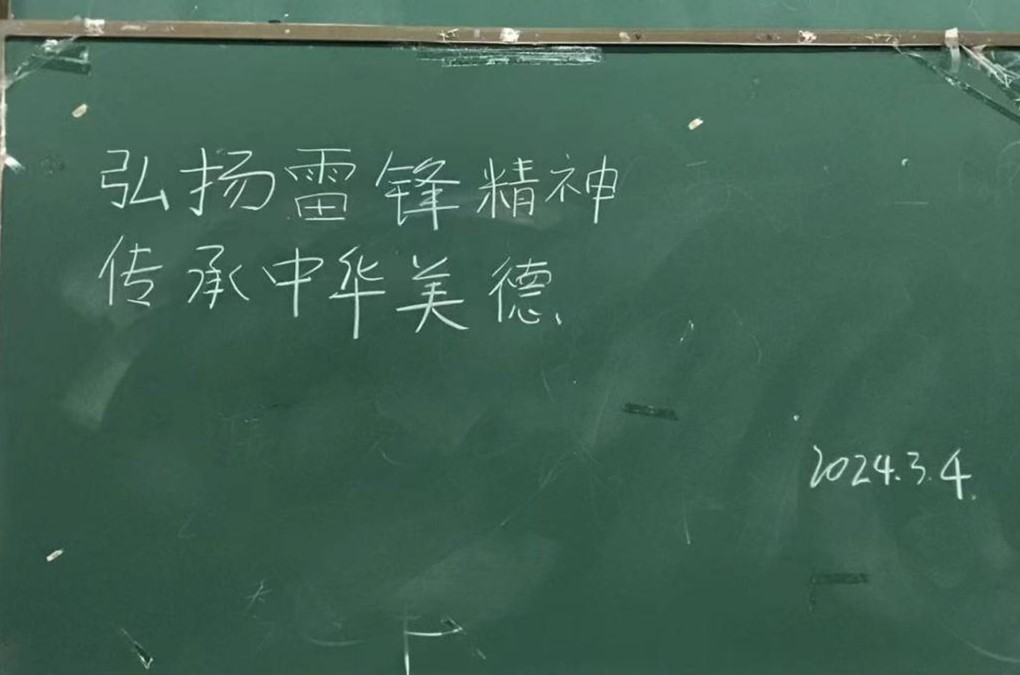 弘扬雷锋精神
传承中华美德、
2024.3.4.